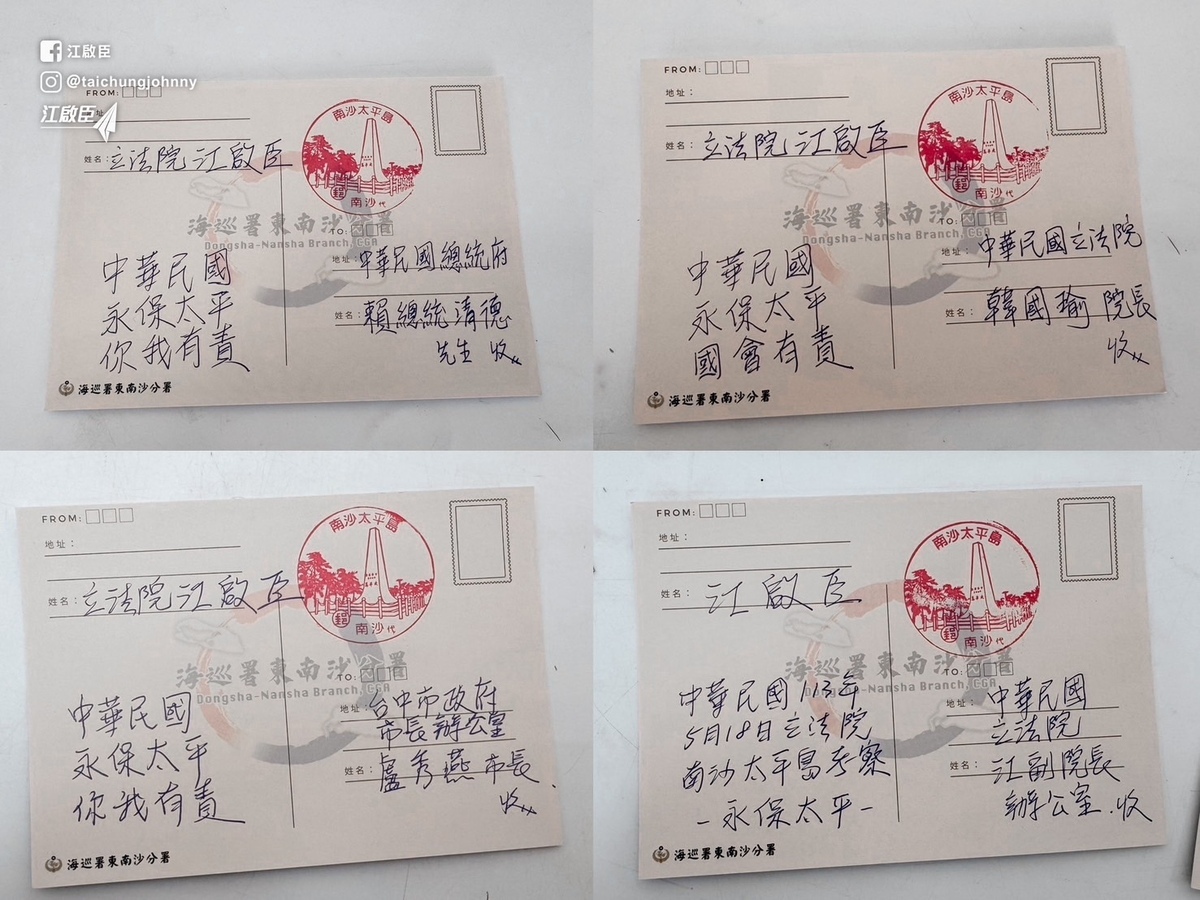 江啟臣
@taichungjohnny
江啟臣
FROM:
姓名：立法院 江啟臣
南沙太平島
郵
南沙代
海巡署東南沙分署
Dongsha-Nansha Branch, CGA
TO:
地址：中華民國總統府
姓名：賴總統清德
先生 收
中華民國
永保太平
你我有責
海巡署東南沙分署
FROM:
地址：
姓名：立法院 江啟臣
南沙太平島
郵
南沙代
海巡署東南沙分署
Dongsha-Nansha Branch, CGA
TO:
地址：中華民國立法院
姓名：韓國瑜 院長
收
中華民國
永保太平
國會有責
海巡署東南沙分署
FROM:
地址：
姓名：立法院 江啟臣
南沙太平島
郵
南沙代
海巡署東南沙分署
Dongsha-Nansha Branch, CGA
TO:
地址：台中市政府
市長辦公室
姓名：盧秀燕 市長
收
中華民國
永保太平
你我有責
海巡署東南沙分署
FROM:
地址：
姓名：江啟臣
南沙太平島
郵
南沙代
海巡署東南沙分署
Dongsha-Nansha Branch, CGA
TO:
地址：中華民國
立法院
姓名：江副院長
辦公室 收
中華民國113年
5月18日立法院
南沙太平島考察
-永保太平-
海巡署東南沙分署